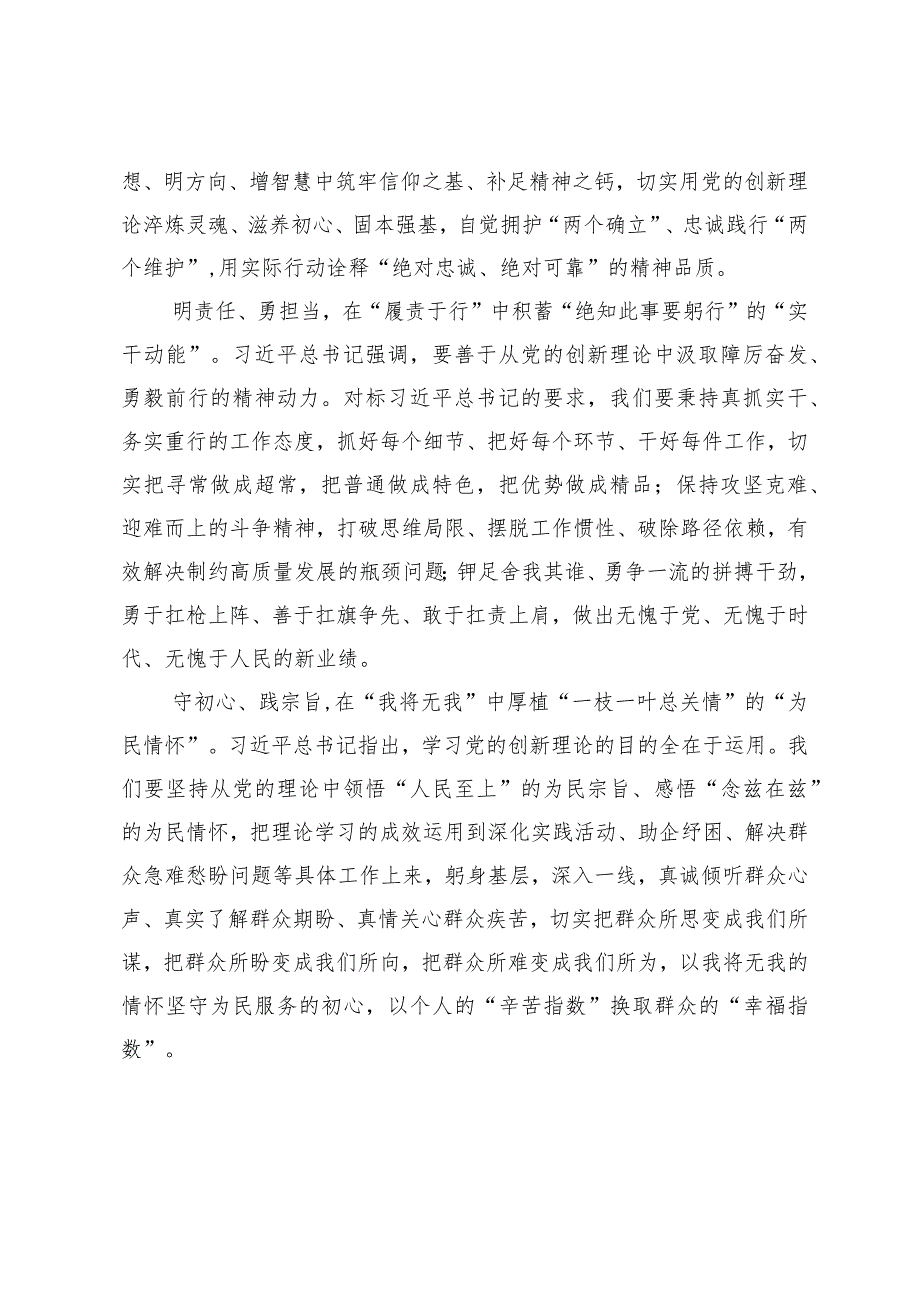 想、明方向、增智慧中筑牢信仰之基、补足精神之钙，切实用党的创新理
论淬炼灵魂、滋养初心、固本强基，自觉拥护“两个确立”、忠诚践行“两
个维护”,用实际行动诠释“绝对忠诚、绝对可靠”的精神品质。
明责任、勇担当，在“履责于行”中积蓄“绝知此事要躬行”的“实
干动能”。习近平总书记强调，要善于从党的创新理论中汲取障厉奋发、
勇毅前行的精神动力。对标习近平总书记的要求，我们要秉持真抓实干、
务实重行的工作态度，抓好每个细节、把好每个环节、干好每件工作，切
实把寻常做成超常，把普通做成特色，把优势做成精品；保持攻坚克难、
迎难而上的斗争精神，打破思维局限、摆脱工作惯性、破除路径依赖，有
效解决制约高质量发展的瓶颈问题；钾足舍我其谁、勇争一流的拼搏干劲，
勇于扛枪上阵、善于扛旗争先、敢于扛责上肩，做出无愧于党、无愧于时
代、无愧于人民的新业绩。
守初心、践宗旨,在“我将无我”中厚植“一枝一叶总关情”的“为
民情怀”。习近平总书记指出，学习党的创新理论的目的全在于运用。我
们要坚持从党的理论中领悟“人民至上”的为民宗旨、感悟“念兹在兹”
的为民情怀，把理论学习的成效运用到深化实践活动、助企纾困、解决群
众急难愁盼问题等具体工作上来，躬身基层，深入一线，真诚倾听群众心
声、真实了解群众期盼、真情关心群众疾苦，切实把群众所思变成我们所
谋，把群众所盼变成我们所向，把群众所难变成我们所为，以我将无我的
情怀坚守为民服务的初心，以个人的“辛苦指数”换取群众的“幸福指
数”。